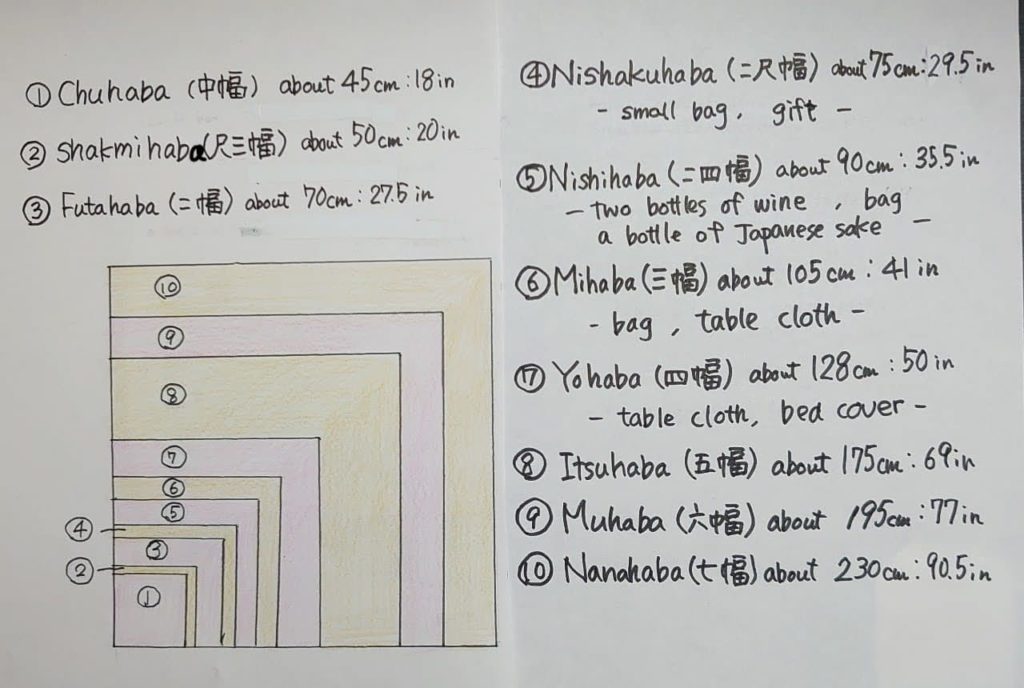 ① Chuhaba (中幅) about 45cm:18in
② shakmihaba(尺三幅) about 50cm:20in
③ Futahaba (二幅) about 70cm:27.5 in
⑩
⑨
⑧
⑦
⑥
⑤
④
③
②
①
④Nishakuhaba (二尺幅) about 75cm:29.5in
- small bag, gift -
⑤Nishihaba (二四幅) about 90cm:35.5in
- two bottles of wine, bag
a bottle of Japanese sake -
⑥Mihaba (三幅) about 105cm:41in
- bag, table cloth -
⑦ Yohaba (四幅) about 128cm:50in
- table cloth, bed cover -
⑧ Itsuhaba (五幅) about 175cm:69in
⑨ Muhaba (六幅) about 195cm:77in
⑩ Nanahaba (七幅) about 230cm:90.5in